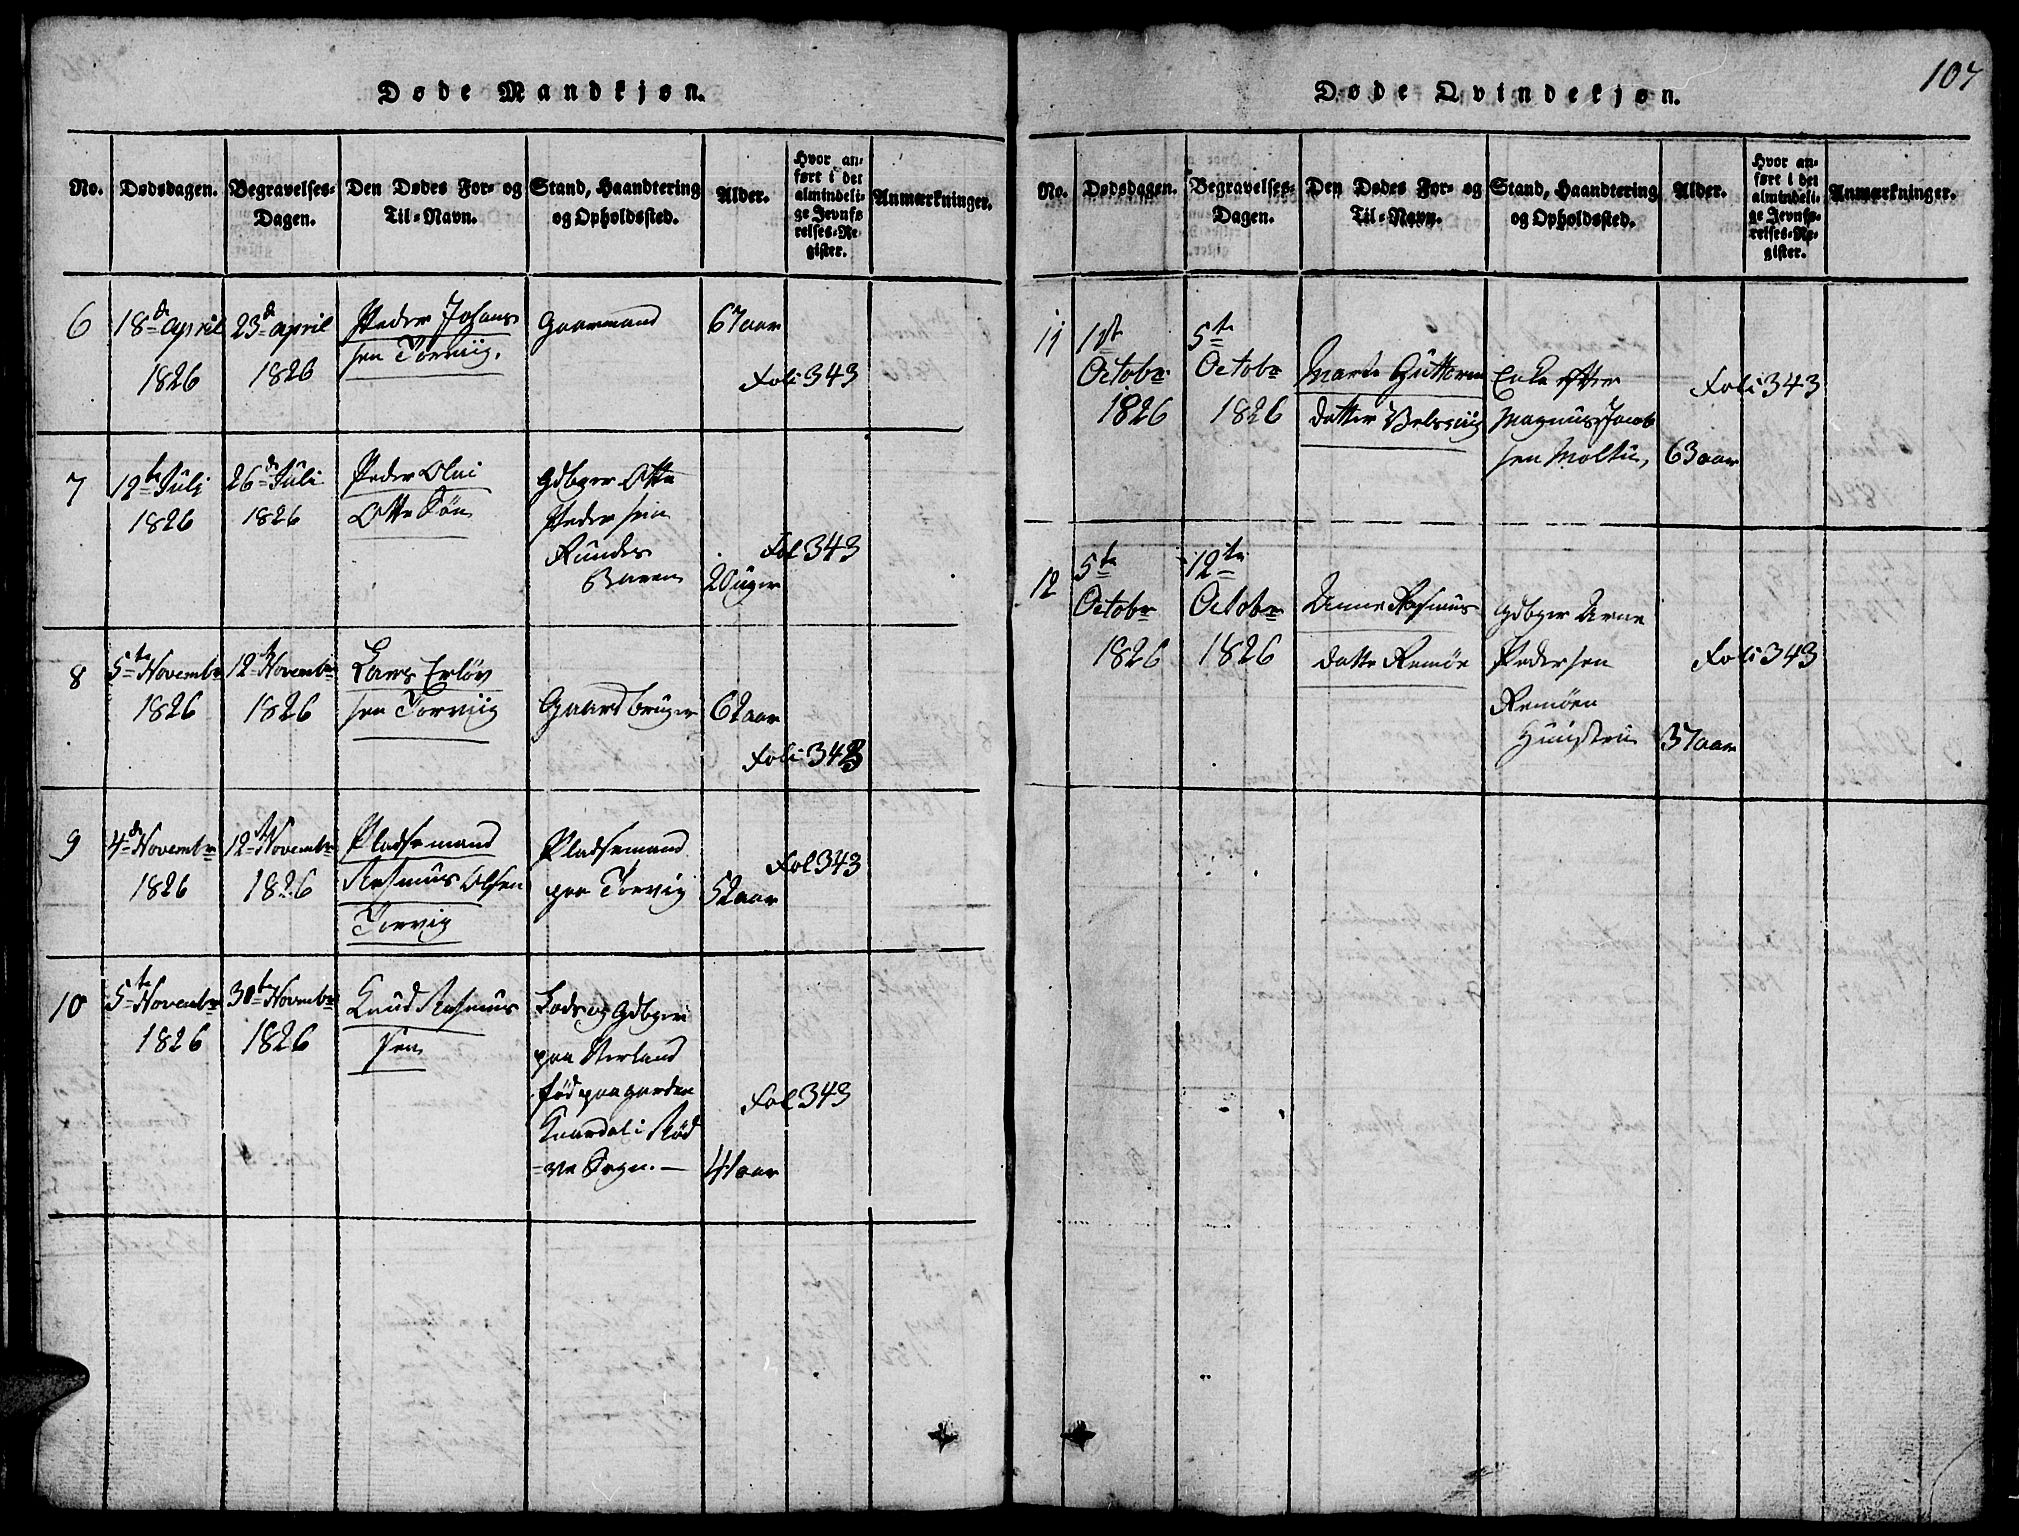 107
Døde Mandkjøn.
No.
Dødsdagen.
Begravelses-
Dagen.
Den Dødes For- og
Til-Navn.
Stand, Haandtering
og Opholdssted.
Alder.
Hvor an-
ført i det
almindeli-
ge Jevnfø
relses-Re
gister.
Anmærkninger.
6
18de april
1826
23de april
1826
Peder Johans
sen Torviig.
Gaarmand
67 aar
Foli 343
7
12te Juli
1826
26de Juli
1826
Peder Olai
Otte Søn
Gdbger Otte
Peder sen
Rundes
Baren
20 uger
Fol 343
8
5te Novembr
1826
12te Novembr
1826
Lars Erlöv
sen Torviig
Gaardbruger
62 aar
Foli 343
9
4de Novembr
1826
12te Novembr
1826
Pladsemand
Rasmus Olsen
Torvig
Pladsemand
paa Torvig
52 aar
Fol 343
10
5te Novembr
1826
30te Novembr
1826
Knud Rasmus
sen
Lods og Gdbger
paa Nerland
fød paa garden
i Rød
-ve Sogn. —
41 aar
Fol 343
Døde Qvindekjøn.
No.
Dødsdagen.
Begravelses-
Dagen.
Den Dødes For- og
Til-Navn.
Stand, Haandtering
og Opholdssted.
Alder.
Hvor an-
ført i det
almindeli-
ge Jevnfø-
relses-Re-
gister.
Anmærkninger.
11
1ste
Octobr
1826
5te
Octobr
1826
Marte Gutterm
datter
Enke efter
Magnus Jacob
sen Moltu,
63 aar
Foli 343
12
5te
Octobr
1826
12te
Octobr
1826
Anne Rasmus
datte Remöe
Gdbger Arne
Pedersen
Remöen
Huustru
37 aar
Foli 343